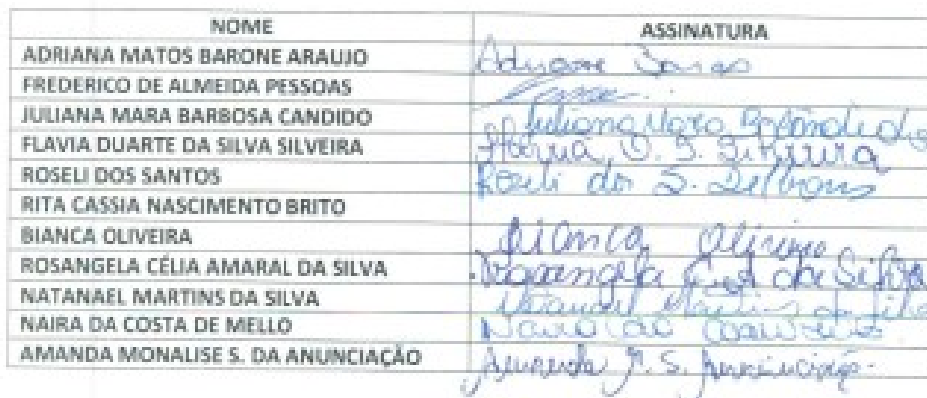 NOME ASSINATURA
ADRIANA MATOS BARONE ARAUJO Adriane
FREDERICO DE ALMEIDA PESSOAS
JULIANA MARA BARBOSA CANDIDO Juliana Mara
FLAVIA DUARTE DA SILVA SILVEIRA Flávia D. S. Silveira
ROSELI DOS SANTOS Roseli dos S.
RITA CASSIA NASCIMENTO BRITO
BIANCA OLIVEIRA Bianca Oliveira
ROSANGELA CÉLIA AMARAL DA SILVA Rosangela da Silva
NATANAEL MARTINS DA SILVA Natanael Martins da Silva
NAIRA DA COSTA DE MELLO Naira da
AMANDA MONALISE S. DA ANUNCIAÇÃO Amanda M. S. Anunciação